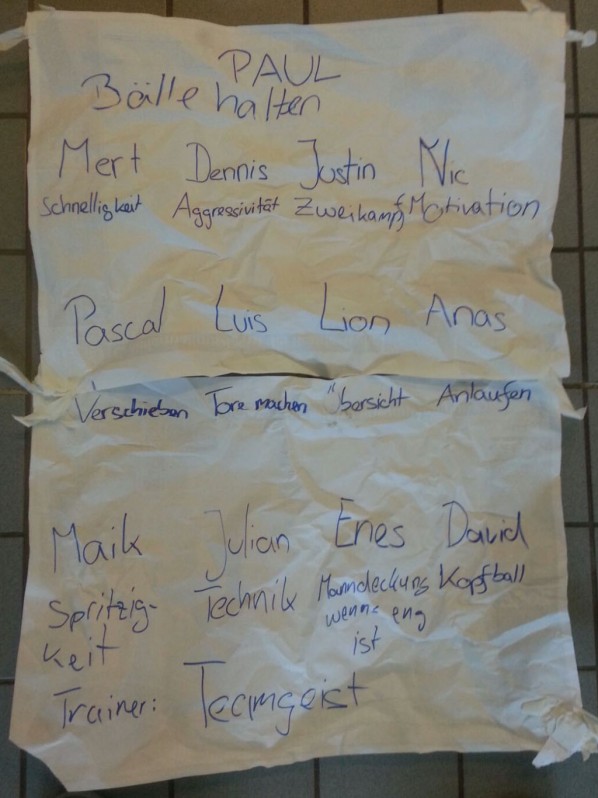 PAUL
Bälle halten
Mert Dennis Justin Nic
Schnelligkeit Aggressivität Zweikampf Motivation
Pascal Luis Lion Anas
Verschieben Tore machen Übersicht Anlaufen
Maik Julian Enes David
Spritzig- Technik Manndeckung Kopfball
keit wenns eng
ist
Trainer: Teamgeist